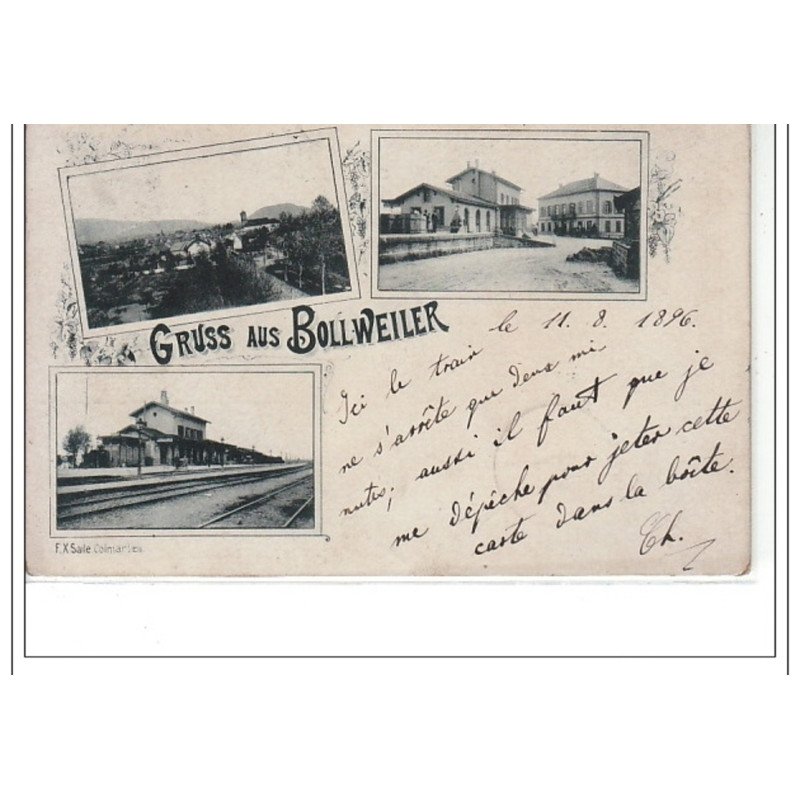 GRUSS AUS BOLLWEILER
le 11. 8. 1896.
Ici le train
ne s'arrête que deux mi
nutes; aussi il faut que je
me dépêche pour jeter cette
carte dans la boîte.
Th.
F.X Saile Colmar